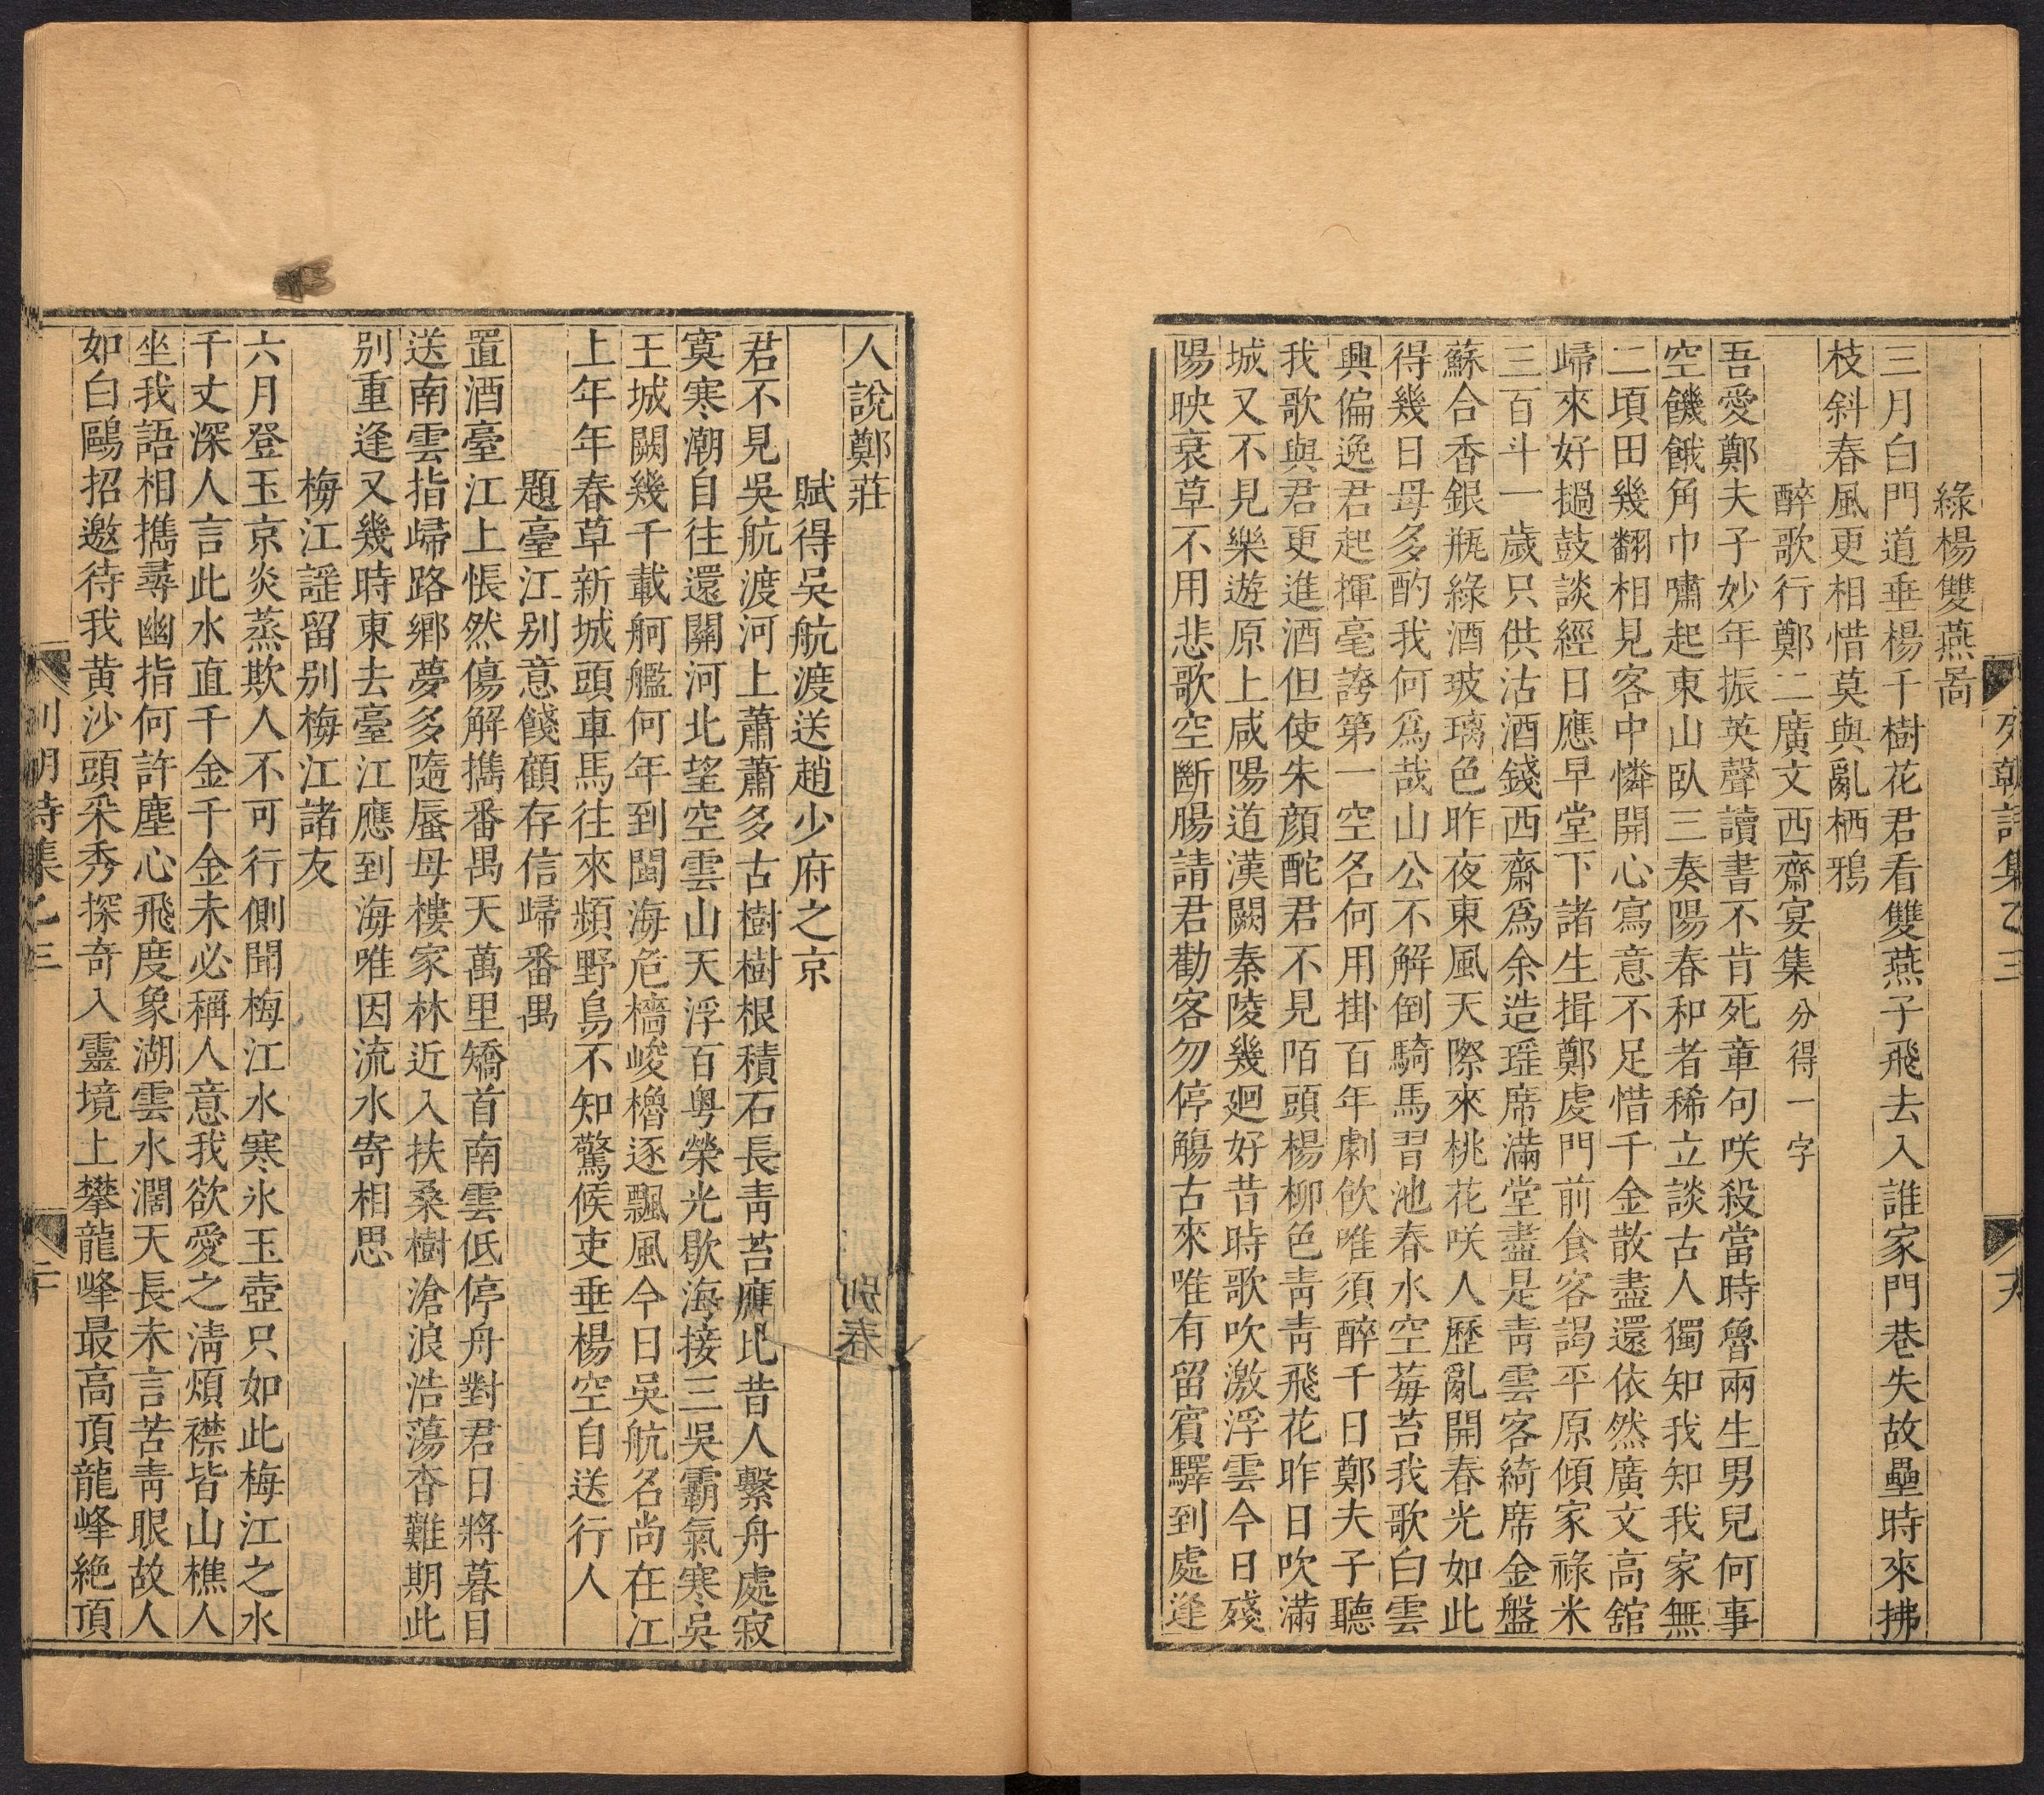 列朝詩集乙三
綠楊雙燕啚
三月白門道垂楊千樹花君看雙燕子飛去入誰家門巷失故壘時來拂
枝斜春風更相惜莫與亂栖鴉
醉歌行鄭二廣文西齋宴集分得一字
吾愛鄭夫子妙年振英聲讀書不肯死章句咲殺當時魯兩生男兒何事
空饑餓角巾嘯起東山臥三奏陽春和者稀立談古人獨知我知我家無
二頃田幾翻相見客中憐開心寫意不足惜千金散盡還依然廣文高舘
歸來好撾鼓談經日應早堂下諸生揖鄭虔門前食客謁平原傾家祿米
三百斗一歲只供沽酒錢西齋爲余造瑶席滿堂盡是靑雲客綺席金盤
蘇合香銀瓶綠酒玻璃色昨夜東風天際來桃花咲人歷亂開春光如此
得幾日母多酌我何爲哉山公不解倒騎馬習池春水空莓苔我歌白雲
興偏逸君起揮毫誇第一空名何用掛百年劇飮唯須醉千日鄭夫子聽
我歌與君更進酒但使朱顔酡君不見陌頭楊柳色靑靑飛花昨日吹滿
城又不見樂遊原上咸陽道漢闕秦陵幾廻好昔時歌吹激浮雲今日殘
陽映衰草不用悲歌空斷腸請君勸客勿停觴古來唯有留賓驛到處逢
人說鄭莊
賦得吳航渡送趙少府之京
君不見吳航渡河上蕭蕭多古樹樹根積石長靑苔應比昔人繫舟處寂
寞寒潮自往還關河北望空雲山天浮百粤榮光歇海接三吳霸氣寒吳
王城闕幾千載舸艦何年到閩海危檣峻櫓逐飄風今日吳航名尚在江
上年年春草新城頭車馬往來頻野鳥不知驚候吏垂楊空自送行人
題臺江别意餞顧存信歸番禺
置酒臺江上悵然傷解擕番禺天萬里矯首南雲低停舟對君日將暮目
送南雲指歸路鄉夢多隨蜃母樓家林近入扶桑樹滄浪浩蕩杳難期此
别重逢又幾時東去臺江應到海唯因流水寄相思
梅江謡留别梅江諸友
六月登玉京炎蒸欺人不可行側聞梅江水寒氷玉壺只如此梅江之水
千丈深人言此水直千金千金未必稱人意我欲愛之淸煩襟皆山樵人
坐我語相擕尋幽指何許塵心飛度象湖雲水濶天長未言苦靑眼故人
如白鷗招邀待我黄沙頭采秀探奇入靈境上攀龍峰最高頂龍峰絶頂
列朝詩集乙三
二十